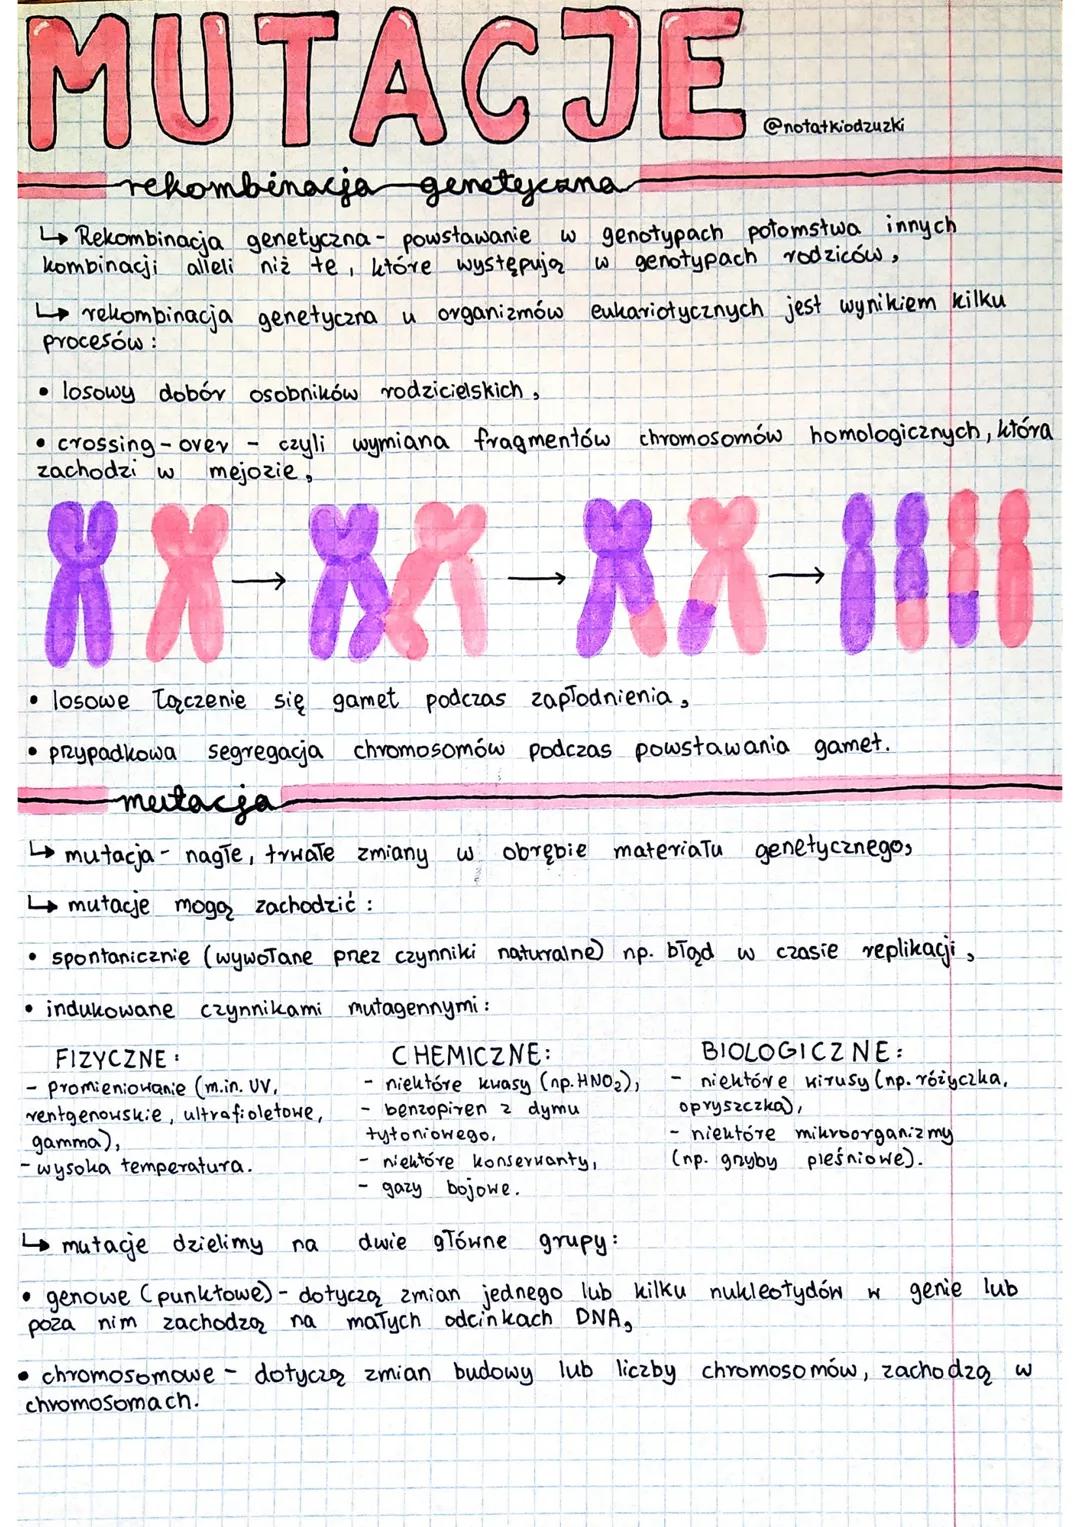 MUTACJE
@notatkiodzuzki
rekombinacja genetyczna
↳ Rekombinacja genetyczna - powstawanie w genotypach potomstwa innych
kombinacji alleli niż te, które występują w genotypach rodziców,
↳ rekombinacja genetyczna u organizmów eukariotycznych jest wynikiem kilku
procesów:
• losowy dobór osobników rodzicielskich,
• crossing-over - czyli wymiana fragmentów chromosomów homologicznych, która
zachodzi w mejozie,
• losowe łączenie się gamet podczas zapłodnienia,
• przypadkowa segregacja chromosomów podczas powstawania gamet.
mutacja
↳ mutacja - nagłe, trwałe zmiany w obrębie materiału genetycznego,
↳ mutacje mogą zachodzić:
• spontanicznie (wywołane przez czynniki naturalne) np. błąd w czasie replikacji,
• indukowane czynnikami mutagennymi:
FIZYCZNE:
- promieniowanie (m.in. UV,
rentgenowskie, ultrafioletowe,
gamma),
- wysoka temperatura.
CHEMICZNE:
- niektóre kwasy (np. HNO₂),
- benzopiren z dymu
tytoniowego,
- niektóre konserwanty,
- gazy bojowe.
BIOLOGICZNE:
- niektóre wirusy (np. różyczka,
opryszczka),
- niektóre mikroorganizmy
(np. grzyby pleśniowe).
↳ mutacje dzielimy na dwie główne grupy:
• genowe (punktowe) - dotyczą zmian jednego lub kilku nukleotydów w genie lub
poza nim zachodzą na małych odcinkach DNA,
• chromosomowe - dotyczą zmian budowy lub liczby chromosomów, zachodzą w
chromosomach.